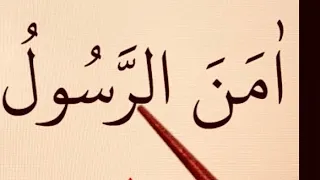 اٰمَنَ الرَّسُولُ